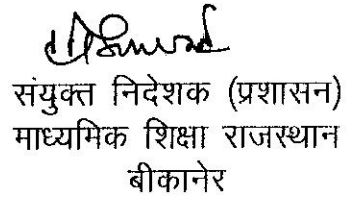 संयुक्त निदेशक (प्रशासन)
माध्यमिक शिक्षा राजस्थान
बीकानेर